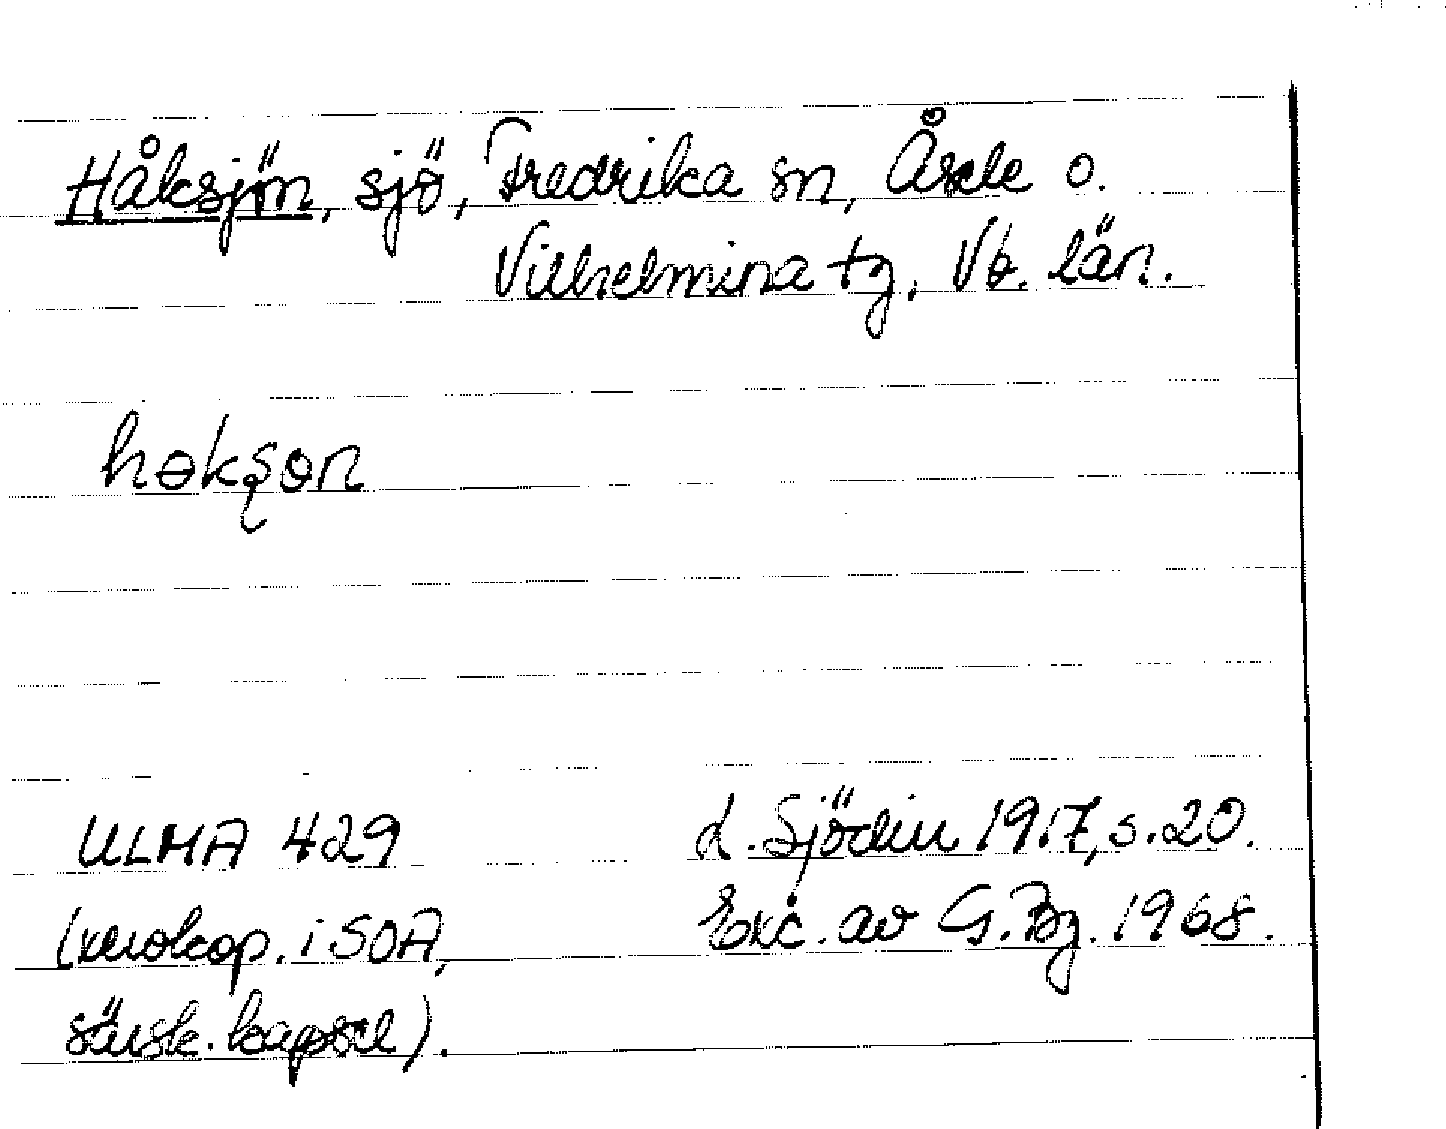 Håksjön, sjö, Fredrika sn, Åsele o.
Vilhelmina tg, Vb. län.
həkşөn
ULMA 429
L. Sjödin 1917, s. 20.
(xerokop. i SOA,
Exc. av G. Bg. 1968.
särsk. kapsel).